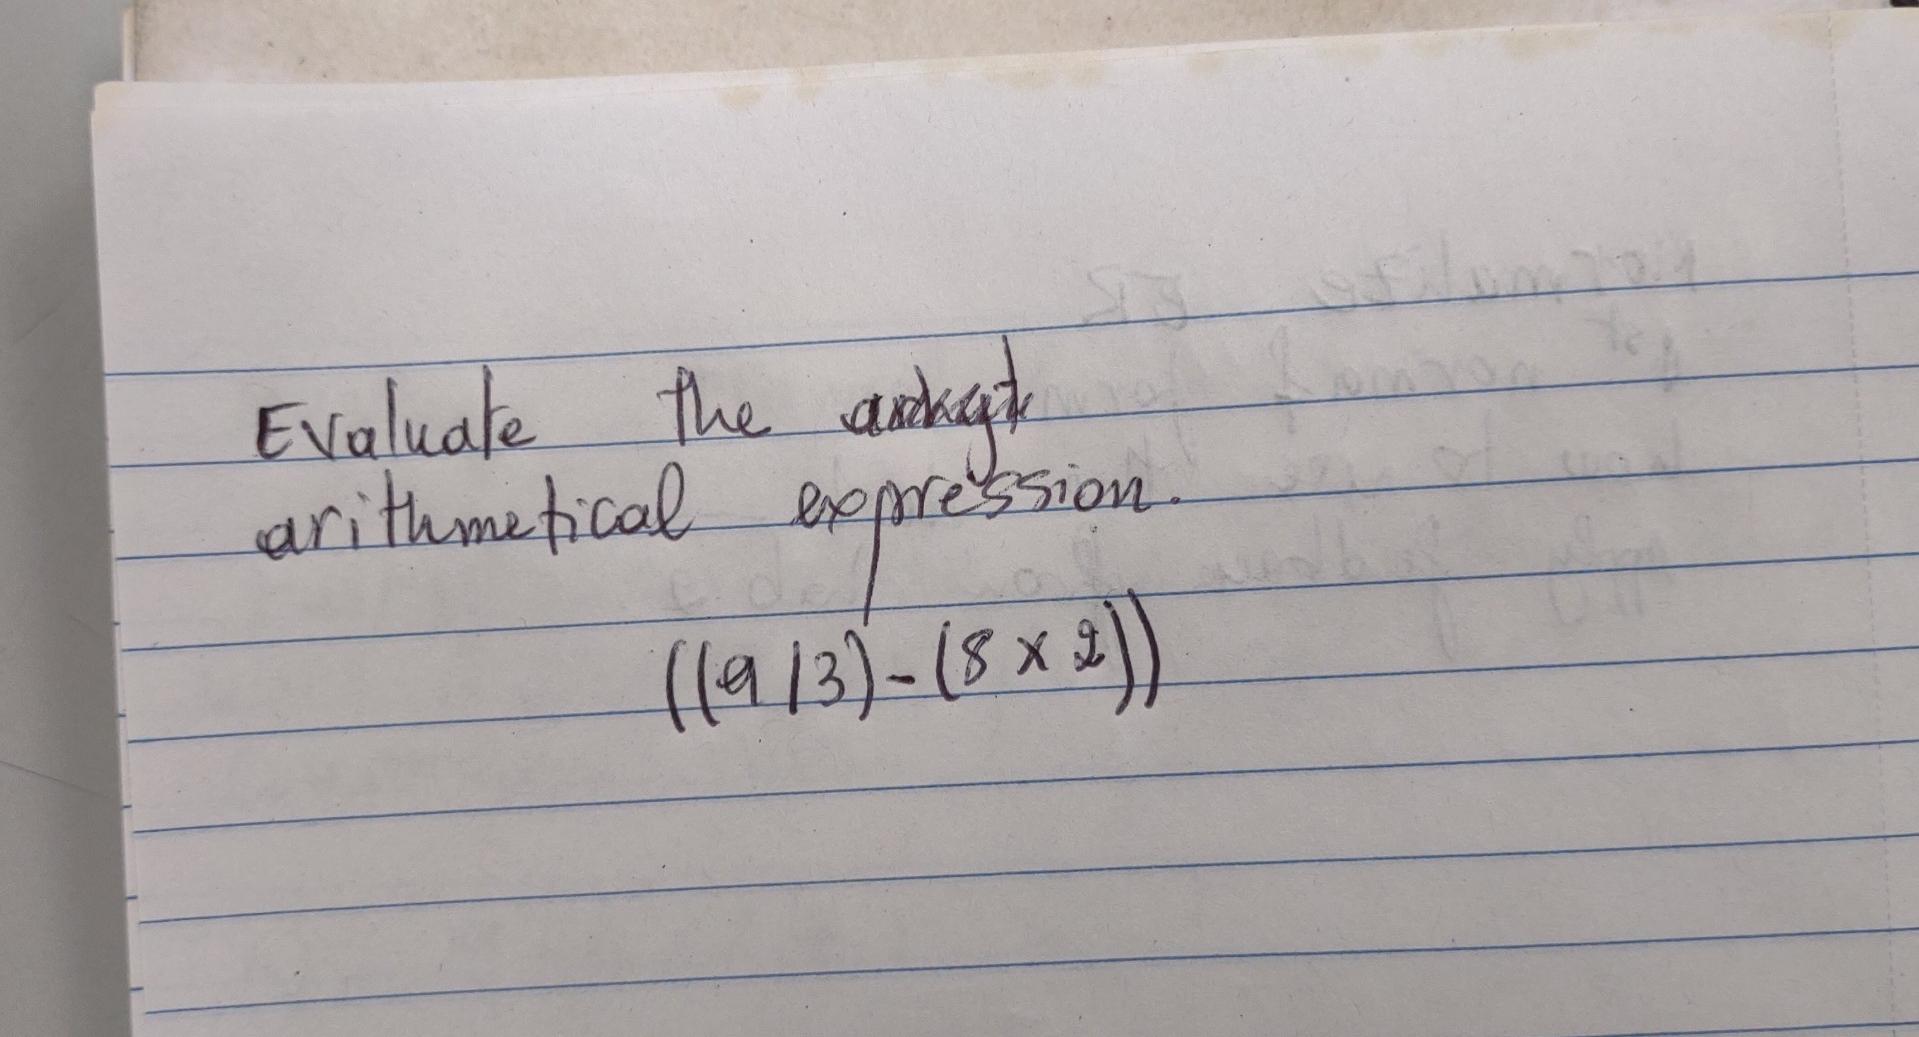 Evaluate the
arithmetical expression.
((9/3)-(8 x 2))